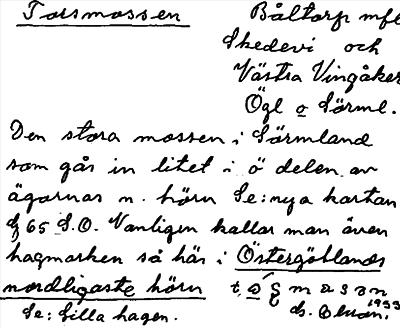 Torsmossen
Båltorp mfl
Skedevi och
Västra Vingåker
Ögl o Sörml.
Den stora mossen i Sörmland
som går in litet i ö delen av
ägornas n. hörn Se: nya kartan
65 S.O. Vanligen kallar man även
hagmarken så här i Östergötlands
nordligaste hörn
Se: Lilla hagen.
1933